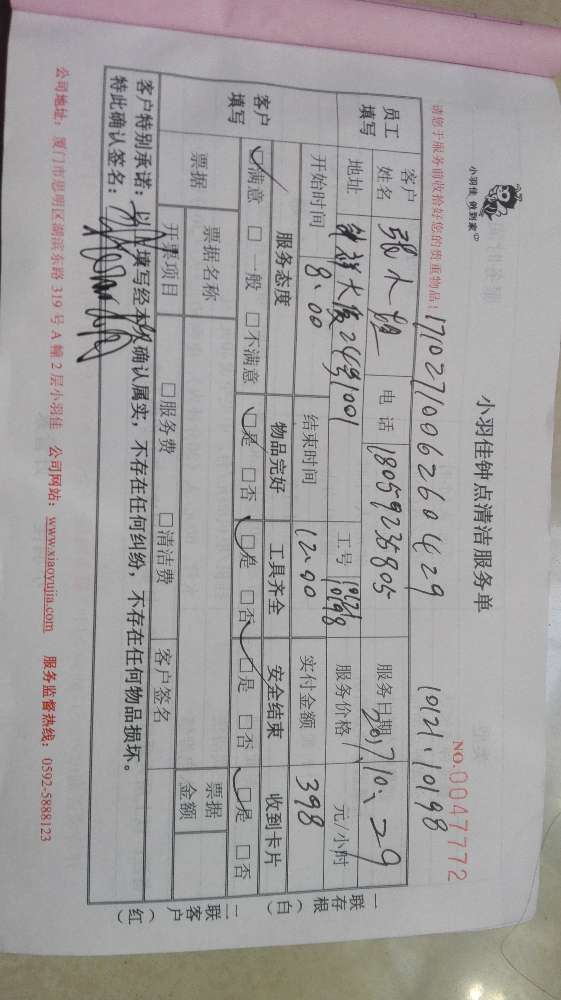 小羽佳 俐到家
小羽佳钟点清洁服务单
NO.0047772
请您于服务前收拾好您的贵重物品!
17102710062601429
10121.10198
员工填写
客户姓名
电话 18059235805
服务日期 2017.10.29
地址
24号1001
工号 10121 10198
服务价格 元/小时
开始时间 8:00
结束时间 12:00
实付金额 398
客户填写
服务态度 物品完好 工具齐全 安全结束 收到卡片
☑满意 □一般 □不满意 ☑是 □否 ☑是 □否 ☑是 □否 ☑是 □否
票据 票据名称 票据金额
开票项目 □服务费 □清洁费 客户签名
客户特别承诺:以上填写经本人确认属实,不存在任何纠纷,不存在任何物品损坏。
特此确认签名:
一联存根(白)
二联客户(红)
公司地址:厦门市思明区湖滨东路319号A幢2层小羽佳 公司网站:www.xiaoyujia.com 服务监督热线:0592-5888123